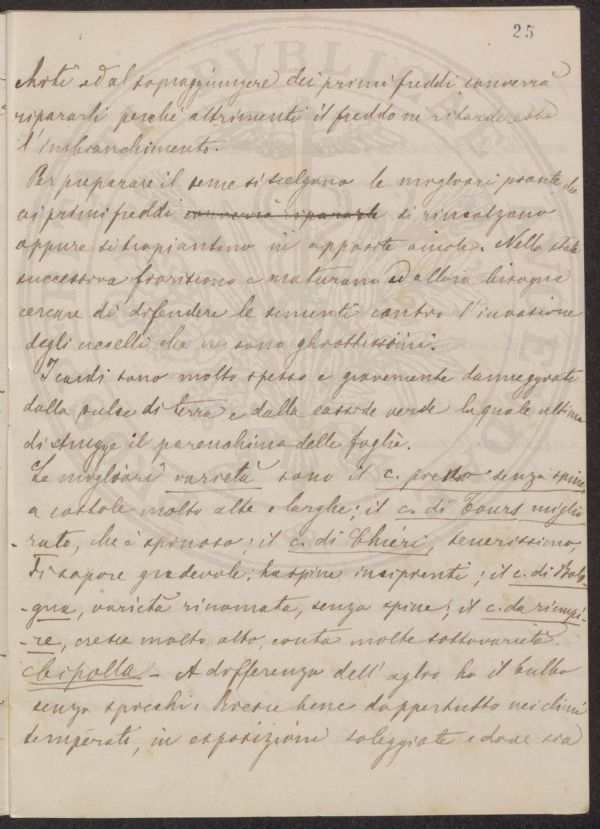 25
ed al sopraggiungere dei primi freddi converrà
ripararli perché altrimenti il freddo ne ritarderebbe
l'imbianchimento.
Per preparare il seme si scelgono le migliori piante, che
ai primi freddi converrà ripararle si rincalzano
oppure si trapiantano in apposite aiuole. Nella state
successiva fioriscono e maturano ed allora bisogna
cercare di difendere le sementi contro l'invasione
degli uccelli che ne sono ghiottissimi.
I cardi sono molto spesso e gravemente danneggiati
dalla pulce di terra e dalla casside verde la quale ultima
distrugge il parenchima delle foglie.
Le migliori varietà sono il c. senza spine,
a costole molto alte e larghe; il c. di Tours miglio
rato, che è spinoso; il c. di Chieri, tenerissimo,
di sapore gradevole, ha spine insipienti; il c. di Bolo
-gna, varietà rinomata, senza spine; il c. da riempi-
-re, cresce molto alto, conta molte sottovarietà.
Cipolla - A differenza dell'aglio ha il bulbo
senza spicchi. Cresce bene dappertutto nei climi
temperati, in esposizioni soleggiate e dove sia